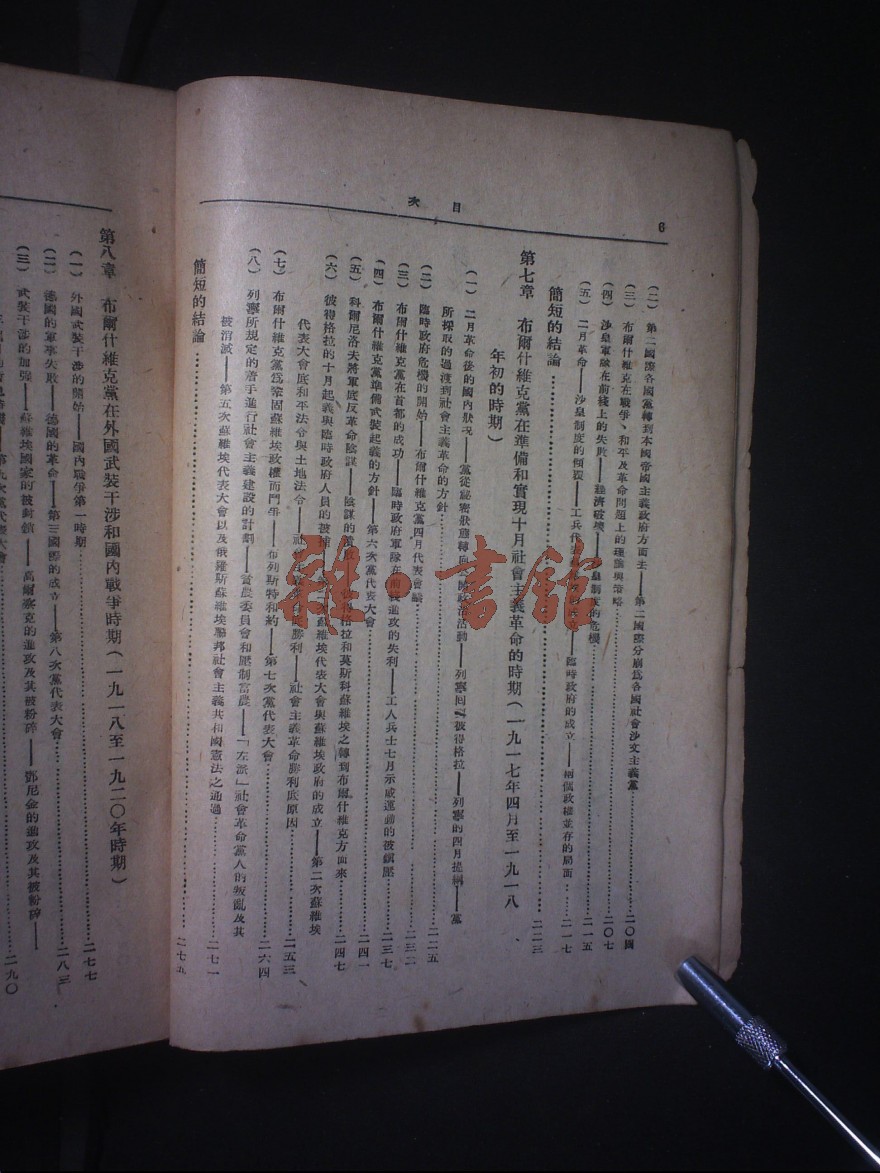 6
目次
(二) 第二國際各國黨轉到本國帝國主義政府方面去——第二國際分崩為各國社會沙文主義黨……二〇四
(三) 布爾什維克在戰爭、和平及革命問題上的理論與策略……二〇七
(四) 沙皇軍隊在前綫上的失敗——經濟破壞——沙皇制度的危機……二一五
(五) 二月革命——沙皇制度的傾覆——工兵代表——臨時政府的成立——兩個政權並存的局面……二一七
簡短的結論……二二三
第七章 布爾什維克黨在準備和實現十月社會主義革命的時期(一九一七年四月至一九一八
年初的時期)
(一) 二月革命後的國內狀况——黨從祕密狀態轉向公開政治活動——列寧回到彼得格拉——列寧的四月提綱——黨
所採取的過渡到社會主義革命的方針……二二五
(二) 臨時政府危機的開始——布爾什維克黨四月代表會議……二三二
(三) 布爾什維克黨在首都的成功——臨時政府軍隊在前綫進攻的失利——工人兵士七月示威運動的被鎮壓……二三七
(四) 布爾什維克黨準備武裝起義的方針——第六次黨代表大會……二四一
(五) 科爾尼洛夫將軍底反革命陰謀——陰謀的——彼得格拉和莫斯科蘇維埃之轉到布爾什維克方面來……二四七
(六) 彼得格拉的十月起義與臨時政府人員的被捕——第二次蘇維埃代表大會與蘇維埃政府的成立——第二次蘇維埃
代表大會底和平法令與土地法令——社會主義革命勝利——社會主義革命勝利底原因……二五三
(七) 布爾什維克黨為鞏固蘇維埃政權而鬥爭——布列斯特和約——第七次黨代表大會……二六四
(八) 列寧所規定的着手進行社會主義建設的計劃——貧農委員會和壓制富農——「左派」社會革命黨人的叛亂及其
被消滅——第五次蘇維埃代表大會以及俄羅斯蘇維埃聯邦社會主義共和國憲法之通過……二七一
簡短的結論……二七五
第八章 布爾什維克黨在外國武裝干涉和國內戰爭時期(一九一八至一九二〇年時期)
(一) 外國武裝干涉的開始——國內戰爭第一時期……二七七
(二) 德國的軍事失敗——德國的革命——第三國際的成立——第八次黨代表大會……二八三
(三) 武裝干涉的加強——蘇維埃國家的被封鎖——高爾察克的進攻及其被粉碎——鄧尼金的進攻及其被粉碎——
第九次黨代表大會……二九〇
雜·書館